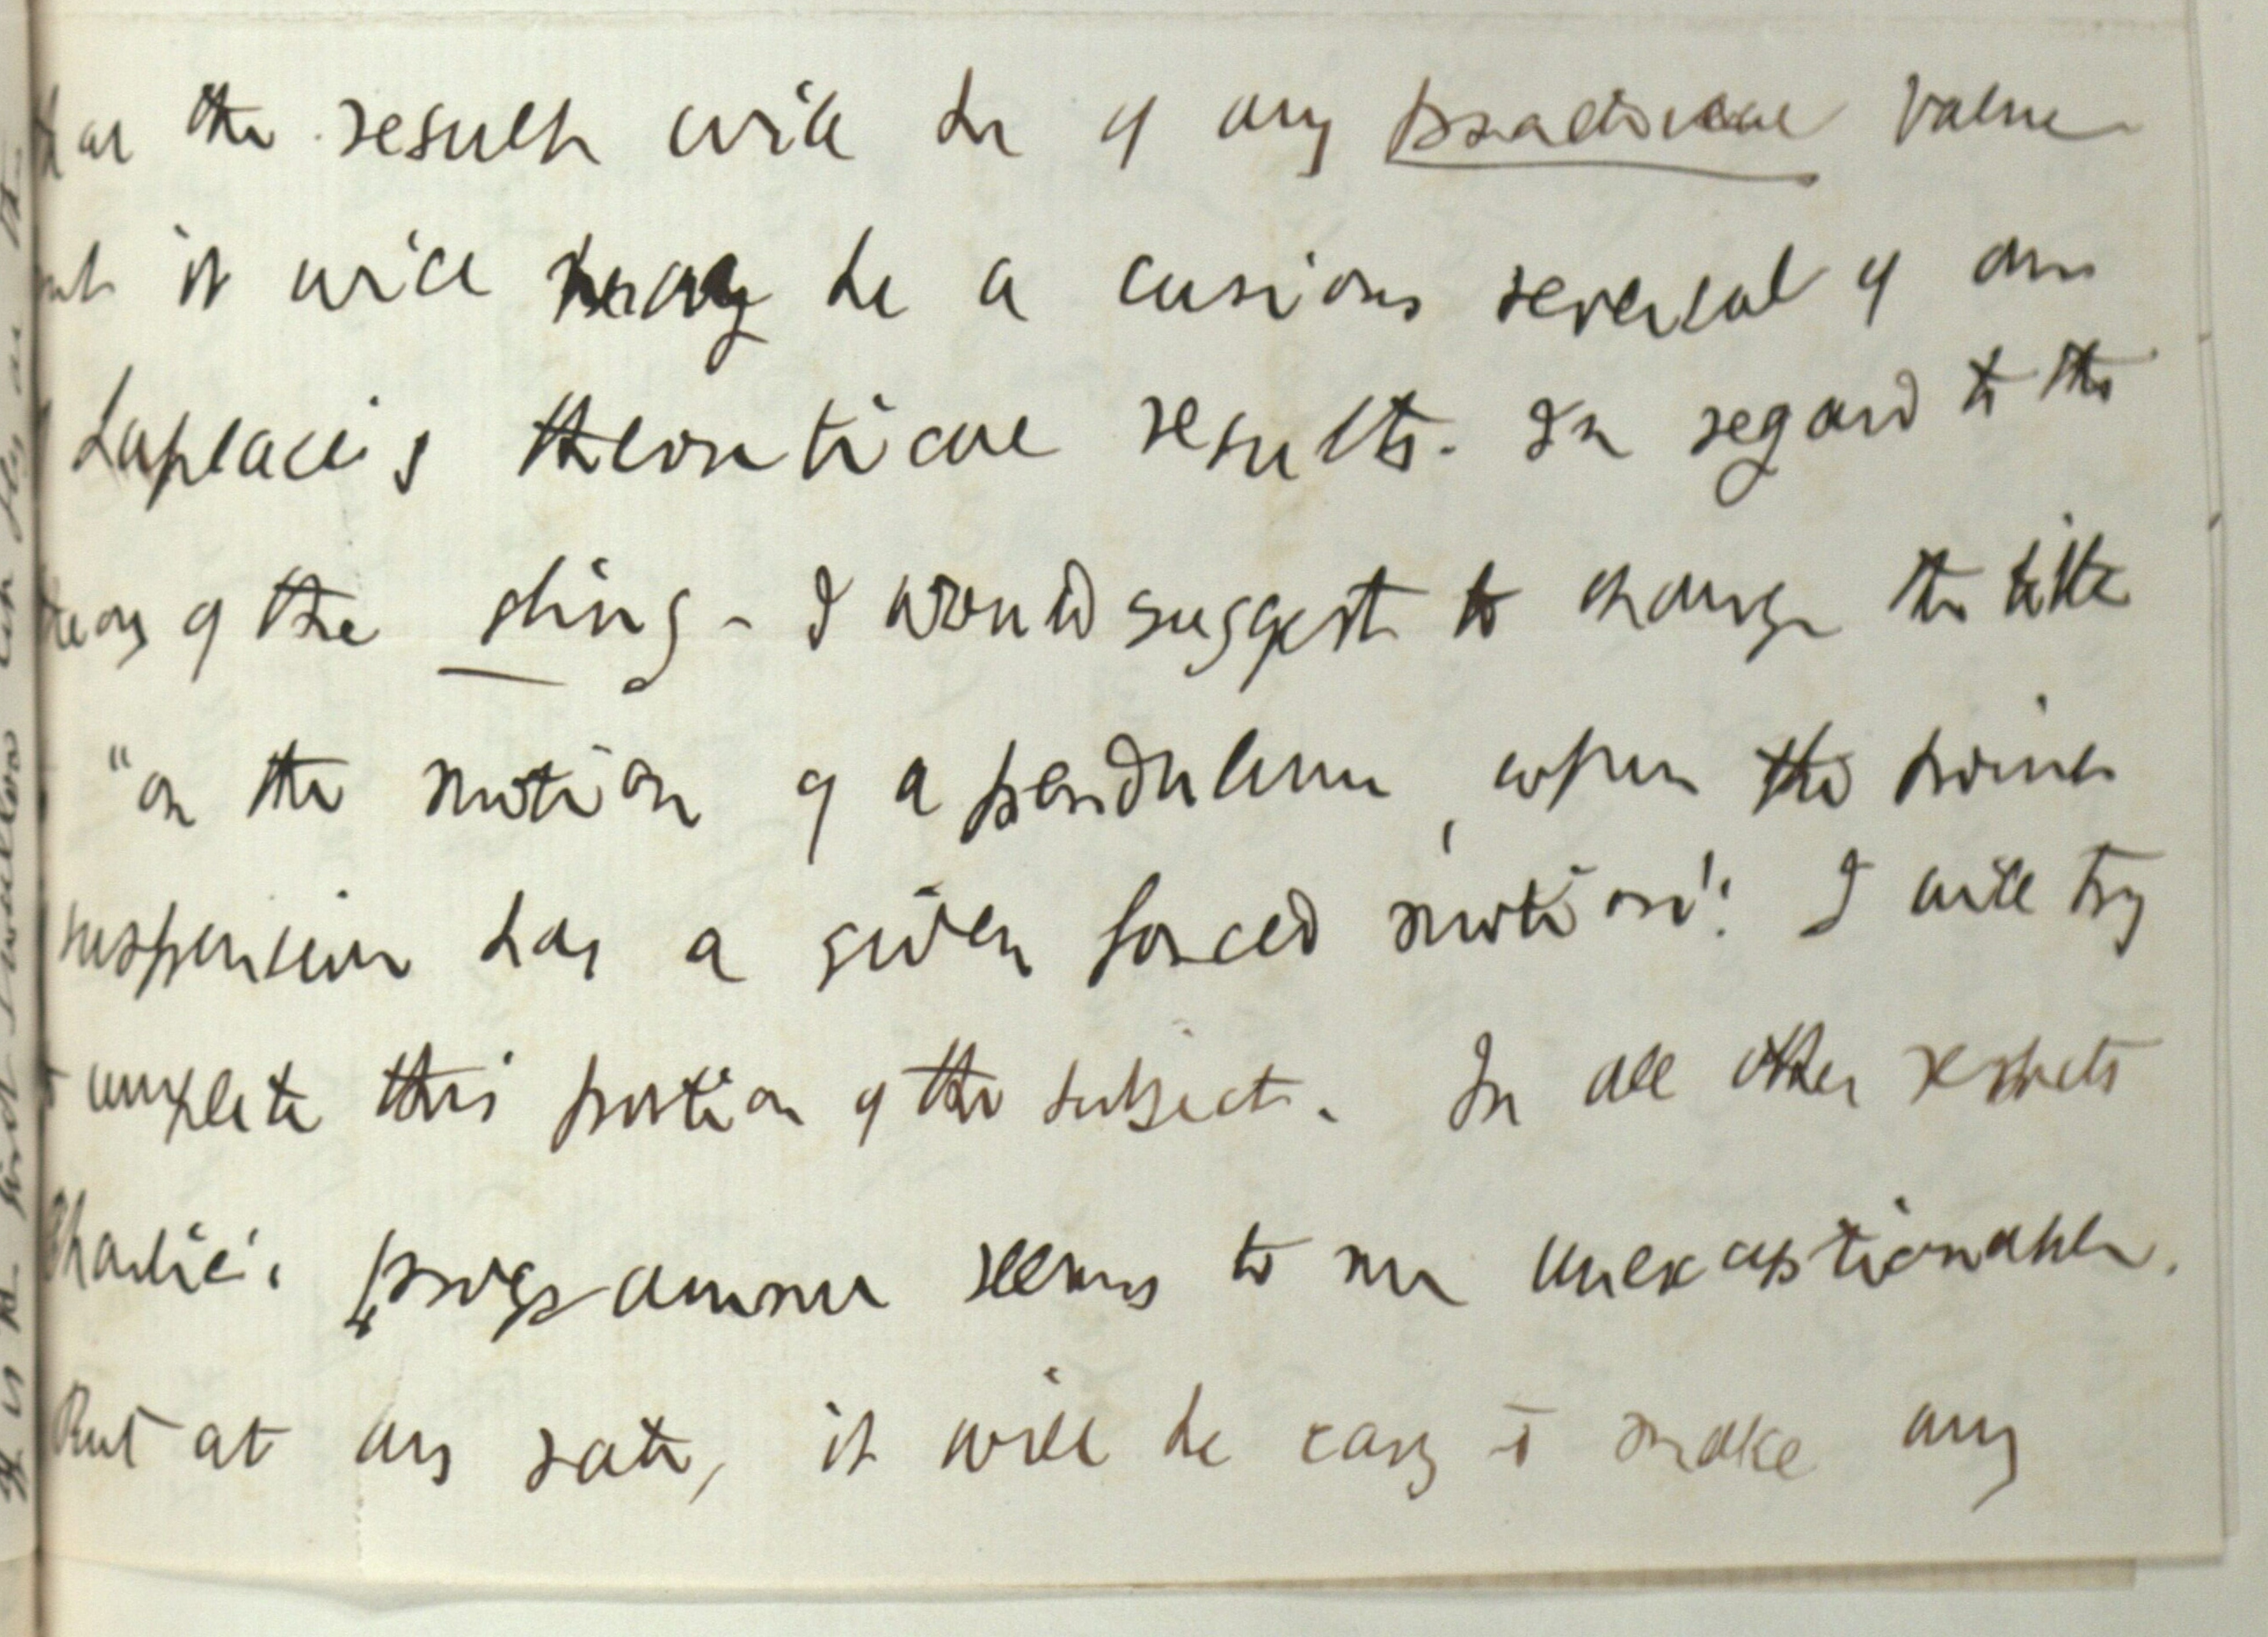 that the result will be of any practical value
but it will be a curious reversal of one
of Laplace's theoretical results. In regard to the
theory of the sling - I would suggest to change the title
"on the motion of a pendulum, when the point
suspension has a given forced motion". I will try
to complete this portion of the subject. In all other respects
Charlie's programme seems to me unexceptionable.
But at any rate, it will be easy to make any